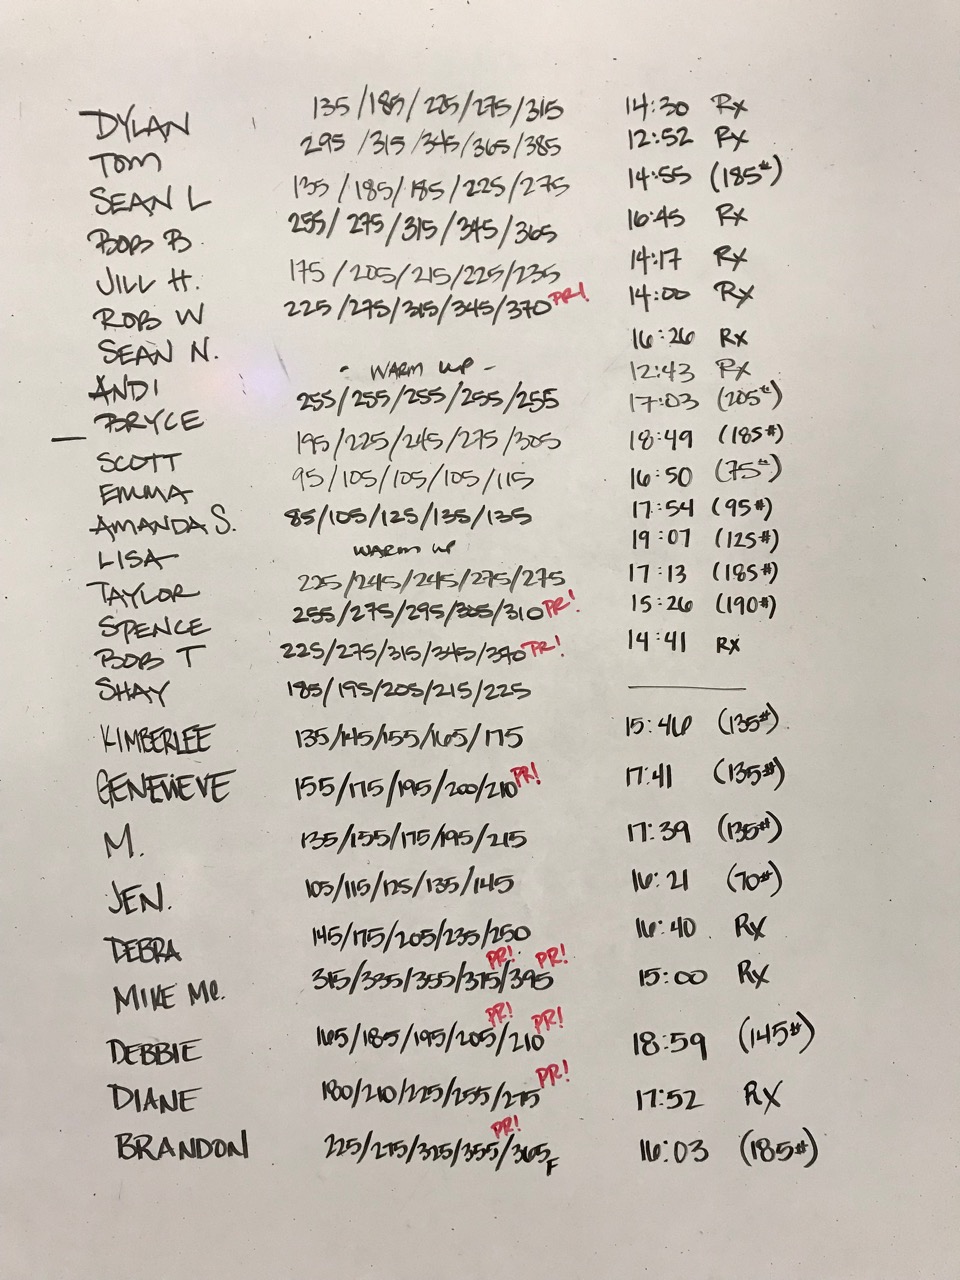 DYLAN 135/185/225/275/315 14:30 Rx
TOM 295/315/345/365/385 12:52 Rx
SEAN L 135/185/185/225/275 14:55 (185#)
BOB B. 255/275/315/345/365 16:45 Rx
JILL H. 175/205/215/225/235 14:17 Rx
ROB W 225/275/315/345/370 PR! 14:00 Rx
SEAN N. 16:26 Rx
ANDI - WARM UP - 12:43 Rx
BRYCE 255/255/255/255/255 17:03 (205#)
SCOTT 195/225/245/275/305 18:49 (185#)
EMMA 95/105/105/105/115 16:50 (75#)
AMANDA S. 85/105/125/135/135 17:54 (95#)
LISA WARM UP 19:07 (125#)
TAYLOR 225/245/245/275/275 17:13 (185#)
SPENCE 255/275/295/305/310 PR! 15:26 (190#)
BOB T 225/275/315/345/370 PR! 14:41 Rx
SHAY 185/195/205/215/225
KIMBERLEE 135/145/155/165/175 15:46 (135#)
GENEVIEVE 155/175/195/200/210 PR! 17:41 (135#)
M. 135/155/175/195/215 17:39 (135#)
JEN. 105/115/125/135/145 16:21 (70#)
DEBRA 145/175/205/235/250 16:40 Rx
MIKE MC. 315/335/355/375 PR!/395 PR! 15:00 Rx
DEBBIE 165/185/195/205 PR!/210 PR! 18:59 (145#)
DIANE 180/210/225/255/275 PR! 17:52 Rx
BRANDON 225/275/325/355 PR!/365F 16:03 (185#)